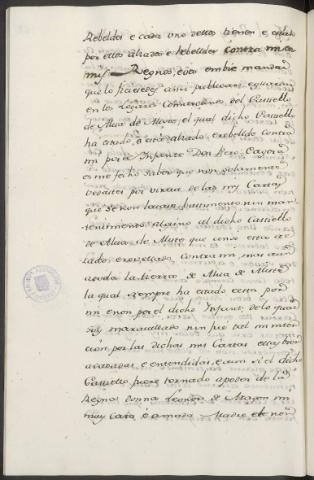 Rebeldes e cada uno dellos tienen e estan
por ellos alzados e rebelldes contra mi e a
mis Regnos, e vos embie mandar
que lo ficiesedes ansi publicar e guardar
en los Logares Comarcanos del Castiello
de Alva de Aliste, el qual dicho Castiello
ha estado, e está alzado, e rebelde contra
mi por el Infante Don Pero, e agora
es me fecho saber que non solamente
vedastes por virtud de las mis Cartas
que se non diesen bastimentos nin man-
tenimientos algunos al dicho Castiello
de Alva de Aliste que como esta al-
zado e rebelado contra mi, mas aun
a toda la tierra de Alva de Aliste
la qual siempre ha estado esta por
mi e non por el dicho Infante, de lo qual
soy maravillado, ca non fue tal mi inten-
cion, por las dichas mis Cartas seyer bien
acatadas, e entendidas, e aun si el dicho
Castiello fuese tornado a poder de la
Regna Donna Leonor de Aragon mi
muy cara é amada Madre e non